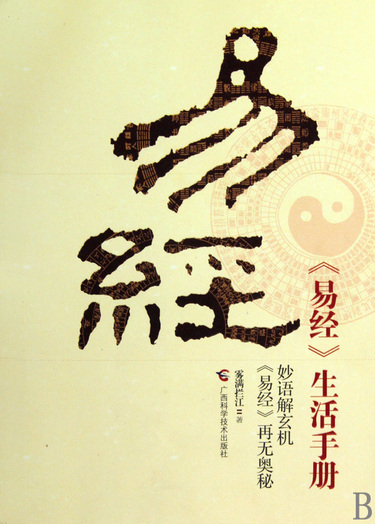 易
經
《易经》生活手册
妙语解玄机
《易经》再无奥秘
雾满拦江 著
广西科学技术出版社
B